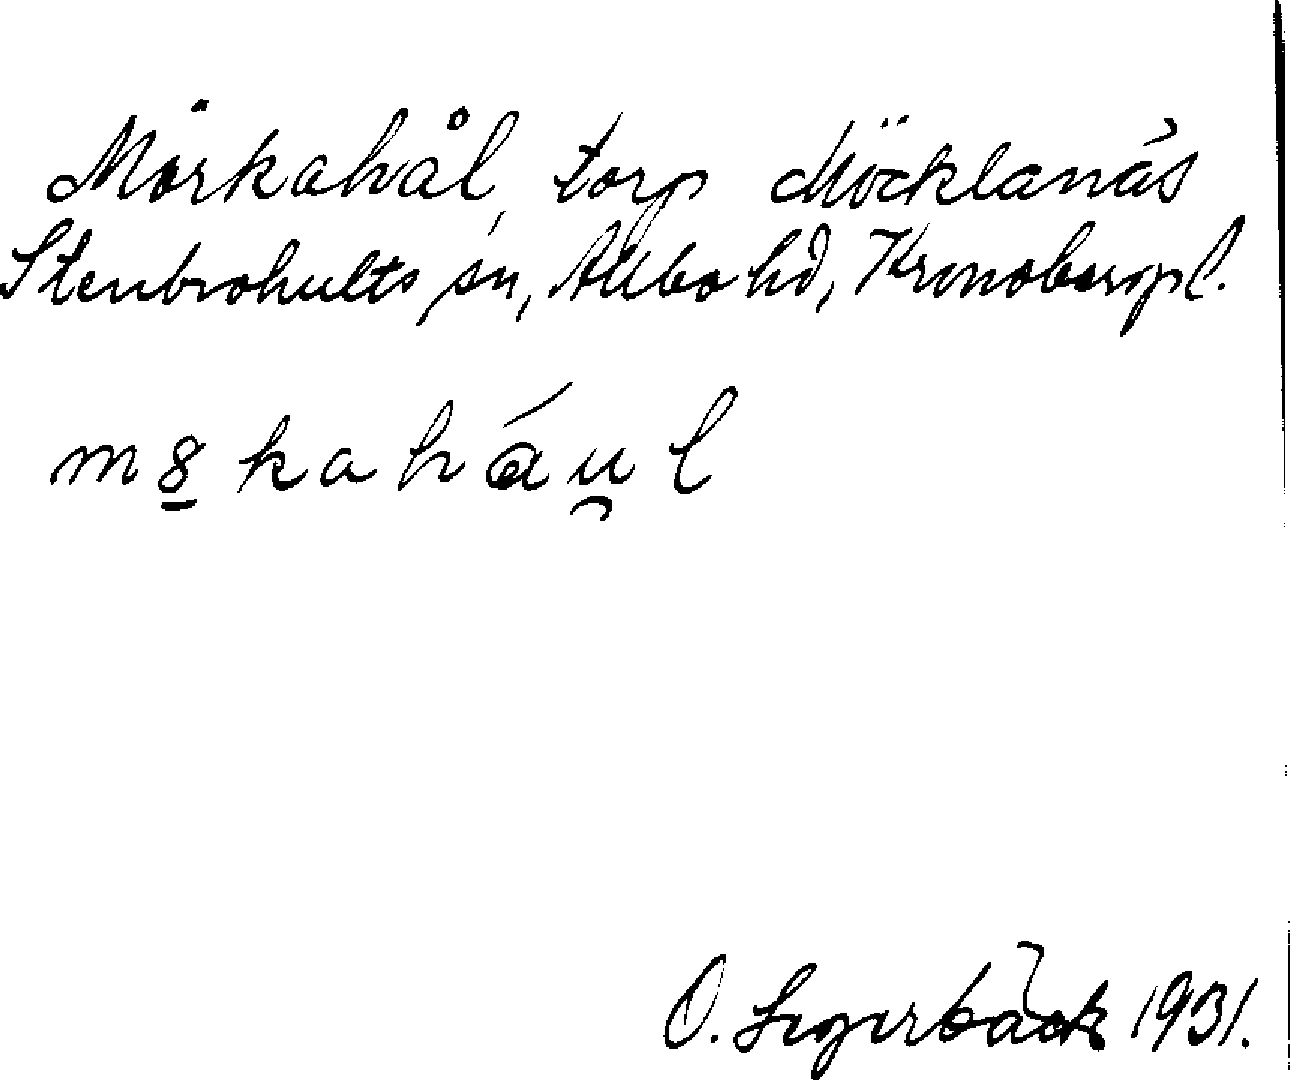 Mörkahål, torp Möcklanäs
Stenbrohults sn, Allbo hd, Kronobergs l.
m8̲kaháu̯l
O. Segerbäck 1931.